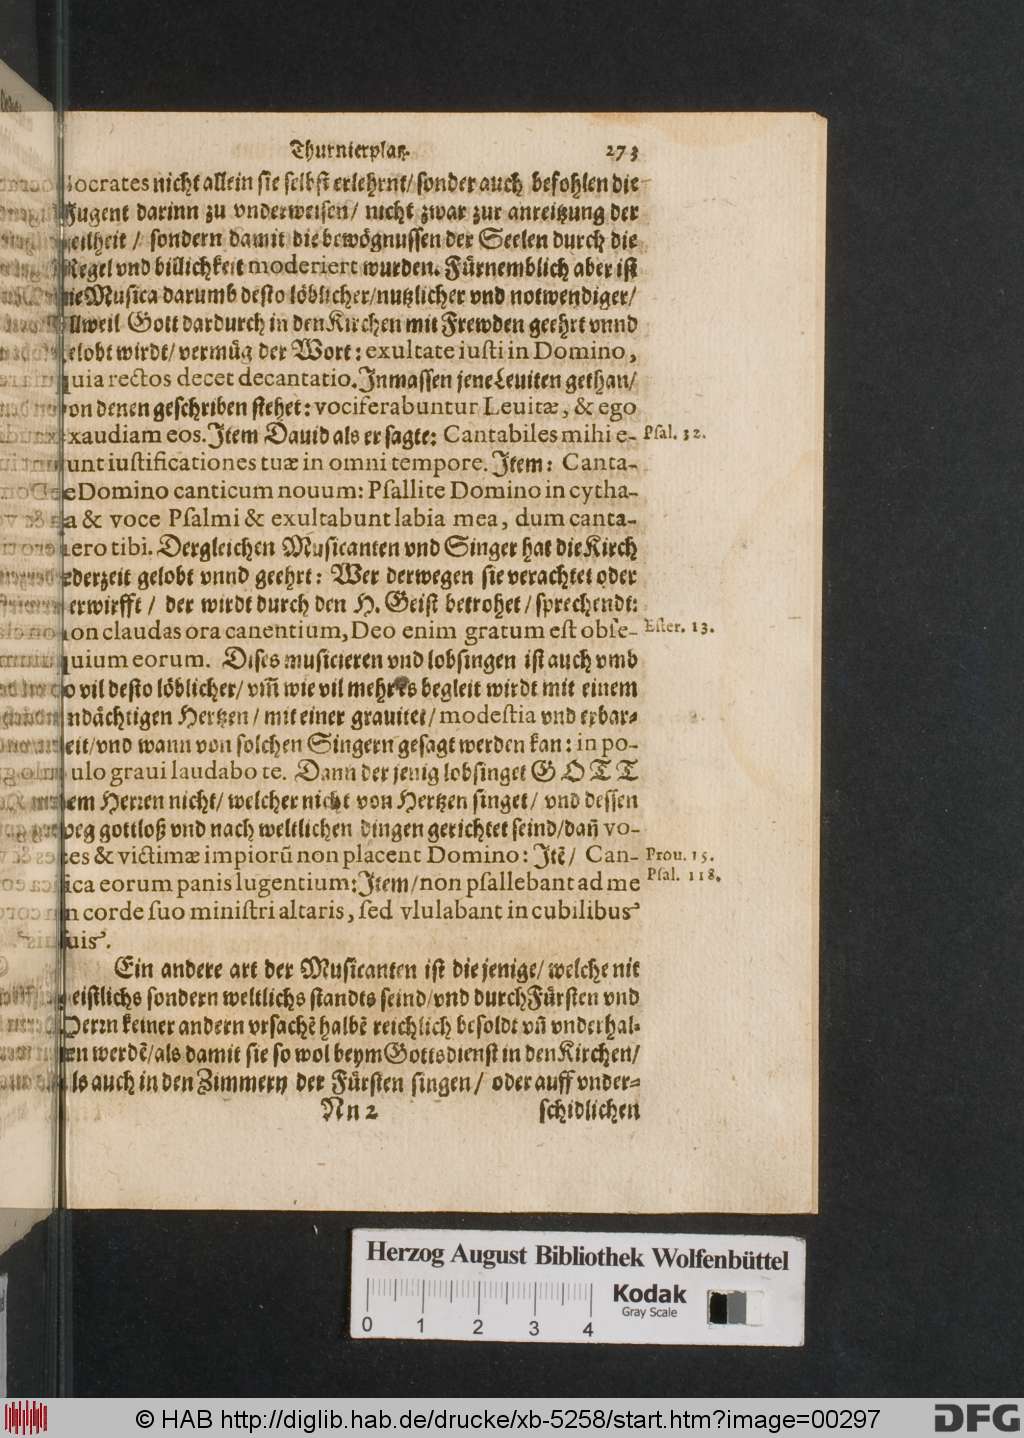 Thurnierplatz. 273
ocrates nicht allein sie selbst erlehrnt/ sonder auch befohlen die
Jugent darinn zu vnderweisen/ nicht zwar zur anreitzung der
eilheit / sondern damit die bewögnussen der Seelen durch die
Regel vnd billichkeit moderiert wurden. Fürnemblich aber ist
ie Musica darumb desto löblicher/ nutzlicher vnd notwendiger/
llweil Gott dardurch in den Kirchen mit Frewden geehrt vnnd
elobt wirdt/ vermüg der Wort: exultate iusti in Domino,
uia rectos decet decantatio. Inmassen jene Leuiten gethan/
on denen geschriben stehet: vociferabuntur Leuitæ, & ego
xaudiam eos. Item Dauid als er sagte: Cantabiles mihi e- Psal. 32.
unt iustificationes tuæ in omni tempore. Item: Canta-
e Domino canticum nouum: Psallite Domino in cytha-
a & voce Psalmi & exultabunt labia mea, dum canta-
ero tibi. Dergleichen Musicanten vnd Singer hat die Kirch
ederzeit gelobt vnnd geehrt: Wer derwegen sie verachtet oder
erwirfft / der wirdt durch den H. Geist betrohet/ sprechendt:
on claudas ora canentium, Deo enim gratum est obse- Ester. 13.
quium eorum. Dises musicieren vnd lobsingen ist auch vmb
o vil desto löblicher/ vm̄ wie vil mehr es begleit wirdt mit einem
ndächtigen Hertzen/ mit einer grauitet/ modestia vnd erbar-
eit/ vnd wann von solchen Singern gesagt werden kan: in po-
ulo graui laudabo te. Dann der jenig lobsinget GOTT
em Herren nicht/ welcher nicht von Hertzen singet/ vnd dessen
weg gottloß vnd nach weltlichen dingen gerichtet seind/ dañ vo-
es & victimæ impiorū non placent Domino: Itē/ Can- Prou. 15.
ica eorum panis lugentium: Item/ non psallebant ad me Psal. 118.
n corde suo ministri altaris, sed vlulabant in cubilibus
suis.
Ein andere art der Musicanten ist die jenige/ welche nit
eistlichs sondern weltlichs standts seind/ vnd durch Fürsten vnd
Herrn keiner andern vrsachē halbē reichlich besoldt vñ vnderhal-
en werdē/ als damit sie so wol beym Gottsdienst in den Kirchen/
ls auch in den Zimmern der Fürsten singen/ oder auff vnder-
Nn 2 schidlichen
Herzog August Bibliothek Wolfenbüttel
Kodak
Gray Scale
0 1 2 3 4
© HAB http://diglib.hab.de/drucke/xb-5258/start.htm?image=00297
DFG